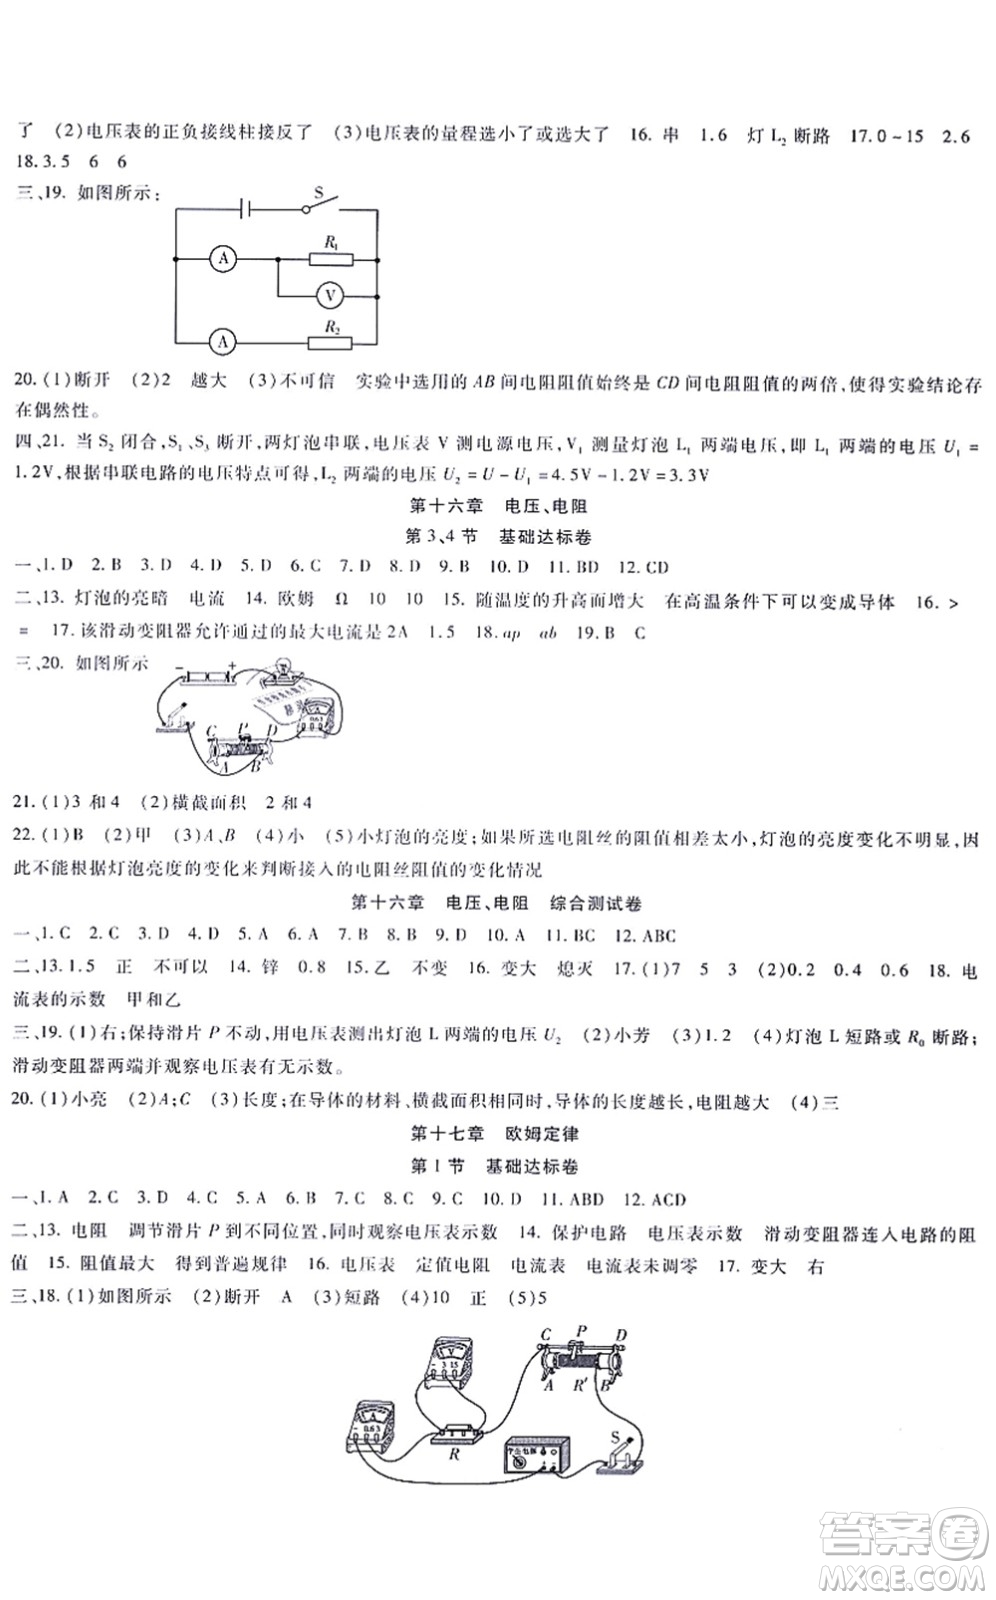 了　(2)电压表的正负接线柱接反了　(3)电压表的量程选小了或选大了　16. 串　1.6　灯L₂断路　17.0~15　2.6
18.3.5　6　6
三、19. 如图所示:
S
R₁
A
V
A
R₂
20.(1)断开　(2)2　越大　(3)不可信　实验中选用的 AB 间电阻阻值始终是 CD 间电阻阻值的两倍,使得实验结论存
在偶然性。
四、21. 当 S₂ 闭合,S₁、S₃ 断开,两灯泡串联,电压表 V 测电源电压,V₁ 测量灯泡 L₁ 两端电压,即 L₁ 两端的电压 U₁ =
1.2V,根据串联电路的电压特点可得,L₂ 两端的电压 U₂ = U - U₁ = 4.5V - 1.2V = 3.3V
第十六章　电压、电阻
第 3、4 节　基础达标卷
一、1. D　2. B　3. D　4. D　5. D　6. D　7. D　8. D　9. B　10. D　11. BD　12. CD
二、13. 灯泡的亮暗　电流　14. 欧姆　Ω　10　10　15. 随温度的升高而增大　在高温条件下可以变成导体　16. >
=　17. 该滑动变阻器允许通过的最大电流是 2A　1.5　18. ap　ab　19. B　C
三、20. 如图所示
- +
C P D
A B
0.6 3
21.(1)3 和 4　(2)横截面积　2 和 4
22.(1)B　(2)甲　(3)A、B　(4)小　(5)小灯泡的亮度;如果所选电阻丝的阻值相差太小,灯泡的亮度变化不明显,因
此不能根据灯泡亮度的变化来判断接入的电阻丝阻值的变化情况
第十六章　电压、电阻　综合测试卷
一、1. C　2. C　3. D　4. D　5. A　6. B　7. C　8. D　9. D　10. A　11. BC　12. ABC
二、13. 1.5　正　不可以　14. 锌　0.8　15. 乙　不变　16. 变大　熄灭　17.(1)7　5　3　(2)0.2　0.4　0.6　18. 电
流表的示数　甲和乙
三、19.(1)右;保持滑片 P 不动,用电压表测出灯泡 L 两端的电压 U₂　(2)小芳　(3)1.2　(4)灯泡 L 短路或 R₀ 断路;
滑动变阻器两端并观察电压表有无示数。
20.(1)小亮　(2)A;C　(3)长度;在导体的材料、横截面积相同时,导体的长度越长,电阻越大　(4)三
第十七章　欧姆定律
第 1 节　基础达标卷
一、1. A　2. C　3. B　4. D　5. A　6. A　7. C　8. C　9. C　10. D　11. ABD　12. ACD
二、13. 电阻　调节滑片 P 到不同位置,同时观察电压表示数　14. 保护电路　电压表示数　滑动变阻器连入电路的阻
值　15. 阻值最大　得到普遍规律　16. 电压表　定值电阻　电流表　电流表未调零　17. 变大　右
三、18.(1)如图所示　(2)断开　A　(3)短路　(4)10　正　(5)5
V
- 3 15
C P D
A R′ B
A
- 0.6 3
R
S
答案卷
MXQE.COM